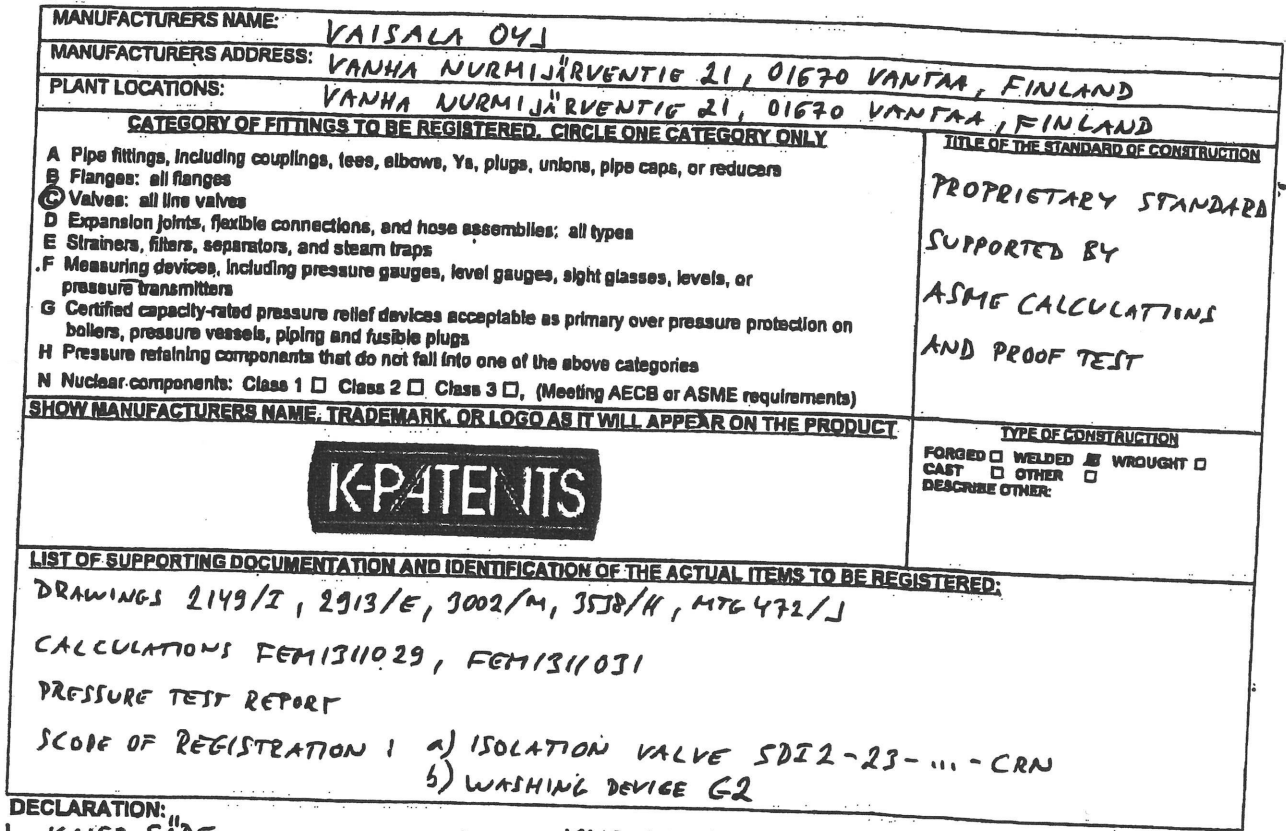 MANUFACTURERS NAME: VAISALA OYJ
MANUFACTURERS ADDRESS: VANHA NURMIJÄRVENTIE 21, 01670 VANTAA, FINLAND
PLANT LOCATIONS: VANHA NURMIJÄRVENTIE 21, 01670 VANTAA, FINLAND
CATEGORY OF FITTINGS TO BE REGISTERED. CIRCLE ONE CATEGORY ONLY
A Pipe fittings, including couplings, tees, elbows, Ys, plugs, unions, pipe caps, or reducers
B Flanges: all flanges
C Valves: all line valves
D Expansion joints, flexible connections, and hose assemblies: all types
E Strainers, filters, separators, and steam traps
F Measuring devices, including pressure gauges, level gauges, sight glasses, levels, or
pressure transmitters
G Certified capacity-rated pressure relief devices acceptable as primary over pressure protection on
boilers, pressure vessels, piping and fusible plugs
H Pressure retaining components that do not fall into one of the above categories
N Nuclear components: Class 1 ☐ Class 2 ☐ Class 3 ☐, (Meeting AECB or ASME requirements)
TITLE OF THE STANDARD OF CONSTRUCTION
PROPRIETARY STANDARD
SUPPORTED BY
ASME CALCULATIONS
AND PROOF TEST
SHOW MANUFACTURERS NAME, TRADEMARK, OR LOGO AS IT WILL APPEAR ON THE PRODUCT
K-PATENTS
TYPE OF CONSTRUCTION
FORGED ☐ WELDED ☒ WROUGHT ☐
CAST ☐ OTHER ☐
DESCRIBE OTHER:
LIST OF SUPPORTING DOCUMENTATION AND IDENTIFICATION OF THE ACTUAL ITEMS TO BE REGISTERED:
DRAWINGS 2149/I, 2913/E, 3002/M, 3538/H, MTG 472/J
CALCULATIONS FEM1311029, FEM1311031
PRESSURE TEST REPORT
SCOPE OF REGISTRATION: a) ISOLATION VALVE SDI2-23-...-CRN
b) WASHING DEVICE G2
DECLARATION: